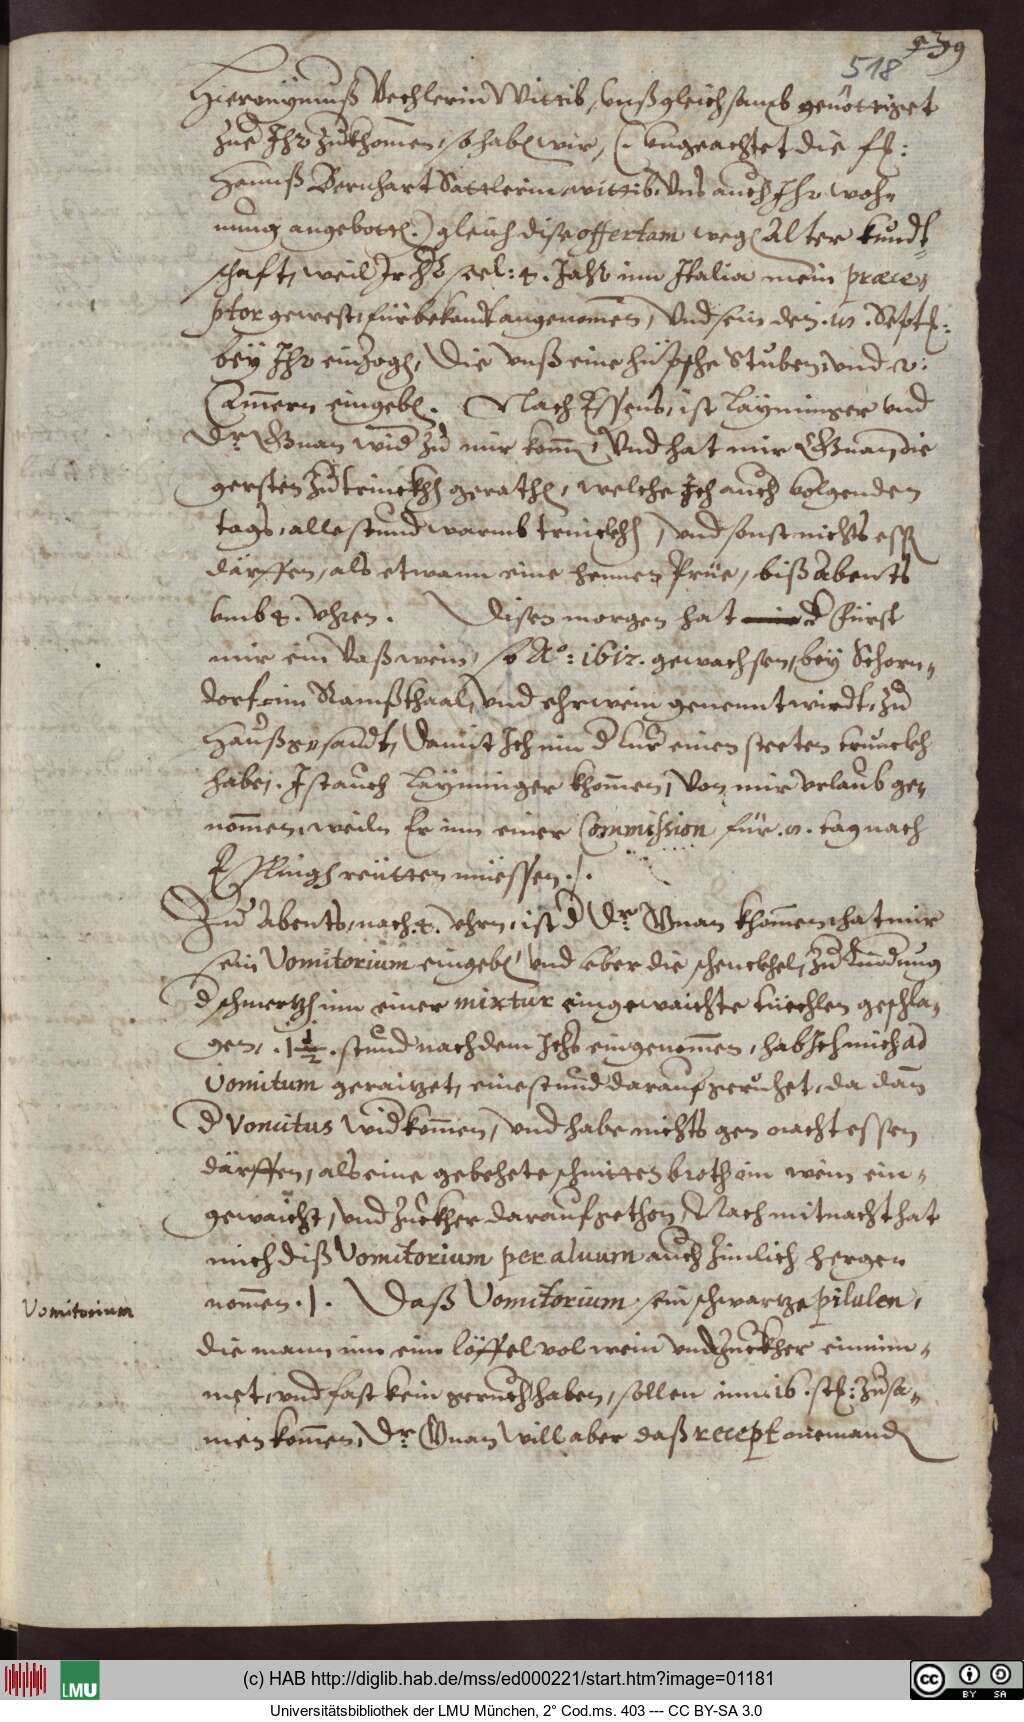 539
518
Hieronÿmuß Vechlerin Wittib, vnß gleichsamb genöttiget
zue Ihr zu khomen, so haben wir, (. vngeachtet die fr:
Hannß Bernhart Sattlerin, wittib, Vns auch Ihr woh-
nung angebotten.) gleich dise offertam wegen Alter kundt-
schaft, weil Ir Hr sel: 4. Jahr inn Italia mein præce-
ptor gewest, für bekant angenomen, Vnd sein den . Septr:
beÿ Ihr einzogen, Die vnß eine hüpsche Stuben, vnd 2:
Camern eingeben. Nach Essens, ist Laÿminger vnd
Dr. Gnan wider zu mir komen, Vnd hat mir Gnan, die
gersten zu trinckhen gerathen, welche Ich auch volgenden
tags, alle stund warmb trinckhen, vnd sonst nichts essen
därffen, als etwann eine hennen Prüe, biß Abents
vmb 4. vhren. Disen morgen hat der Fürst
mir ein Vaß wein, so Ao: 1612. gewachsen, beÿ Schorn-
dorf im Ramßthaal, vnd ehrwein genennt wirdt, zu
Hauß gesandt, Damit Ich inn der Cur einen steeten trunckh
habe. Ist auch Laÿminger khomen, Von mir vrlaub ge-
nomen, weiln Er inn einer Commission für . tag nach
Eßlingen reütten müessen ./.
Zu Abents, nach 4. vhren, ist der Dr. Gnan khomen, hat mir
sein Vomitorium eingeben, vnd über die schenckhel, zu Linderung
der schmertzen inn einer mixtur eingewaichte tüechlen geschla-
gen, . 1 1/2 . stund nach dem Ichs eingenomen, hab Ich mich ad
Vomitum geraitzet, eine stund darauf geruhet, da dan
der Vomitus wider komen, vnd habe nichts gen nacht essen
därffen, als eine gebehete schnitten broth in wein ein-
gewaicht, vnd Zuckher darauf gethon, Nach mitnacht hat
mich diß Vomitorium per aluum auch zimlich hergen
nomen ./. Daß Vomitorium sein schwartze pilulen,
Vomitorium
die mann inn eim löffel vol wein vnd Zuckher einnim-
met, vnd fast kein geruch haben, sollen inn 16. stk: zusa-
men komen, Dr. Gnan will aber daß recept niemanden
(c) HAB http://diglib.hab.de/mss/ed000221/start.htm?image=01181
LMU
cc BY SA
Universitätsbibliothek der LMU München, 2° Cod.ms. 403 --- CC BY-SA 3.0